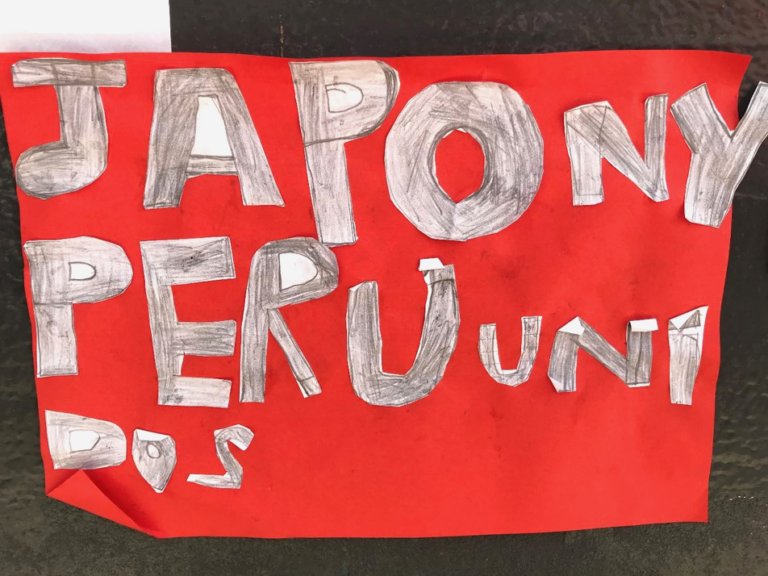 JAPONY
PERU UNI
DOS